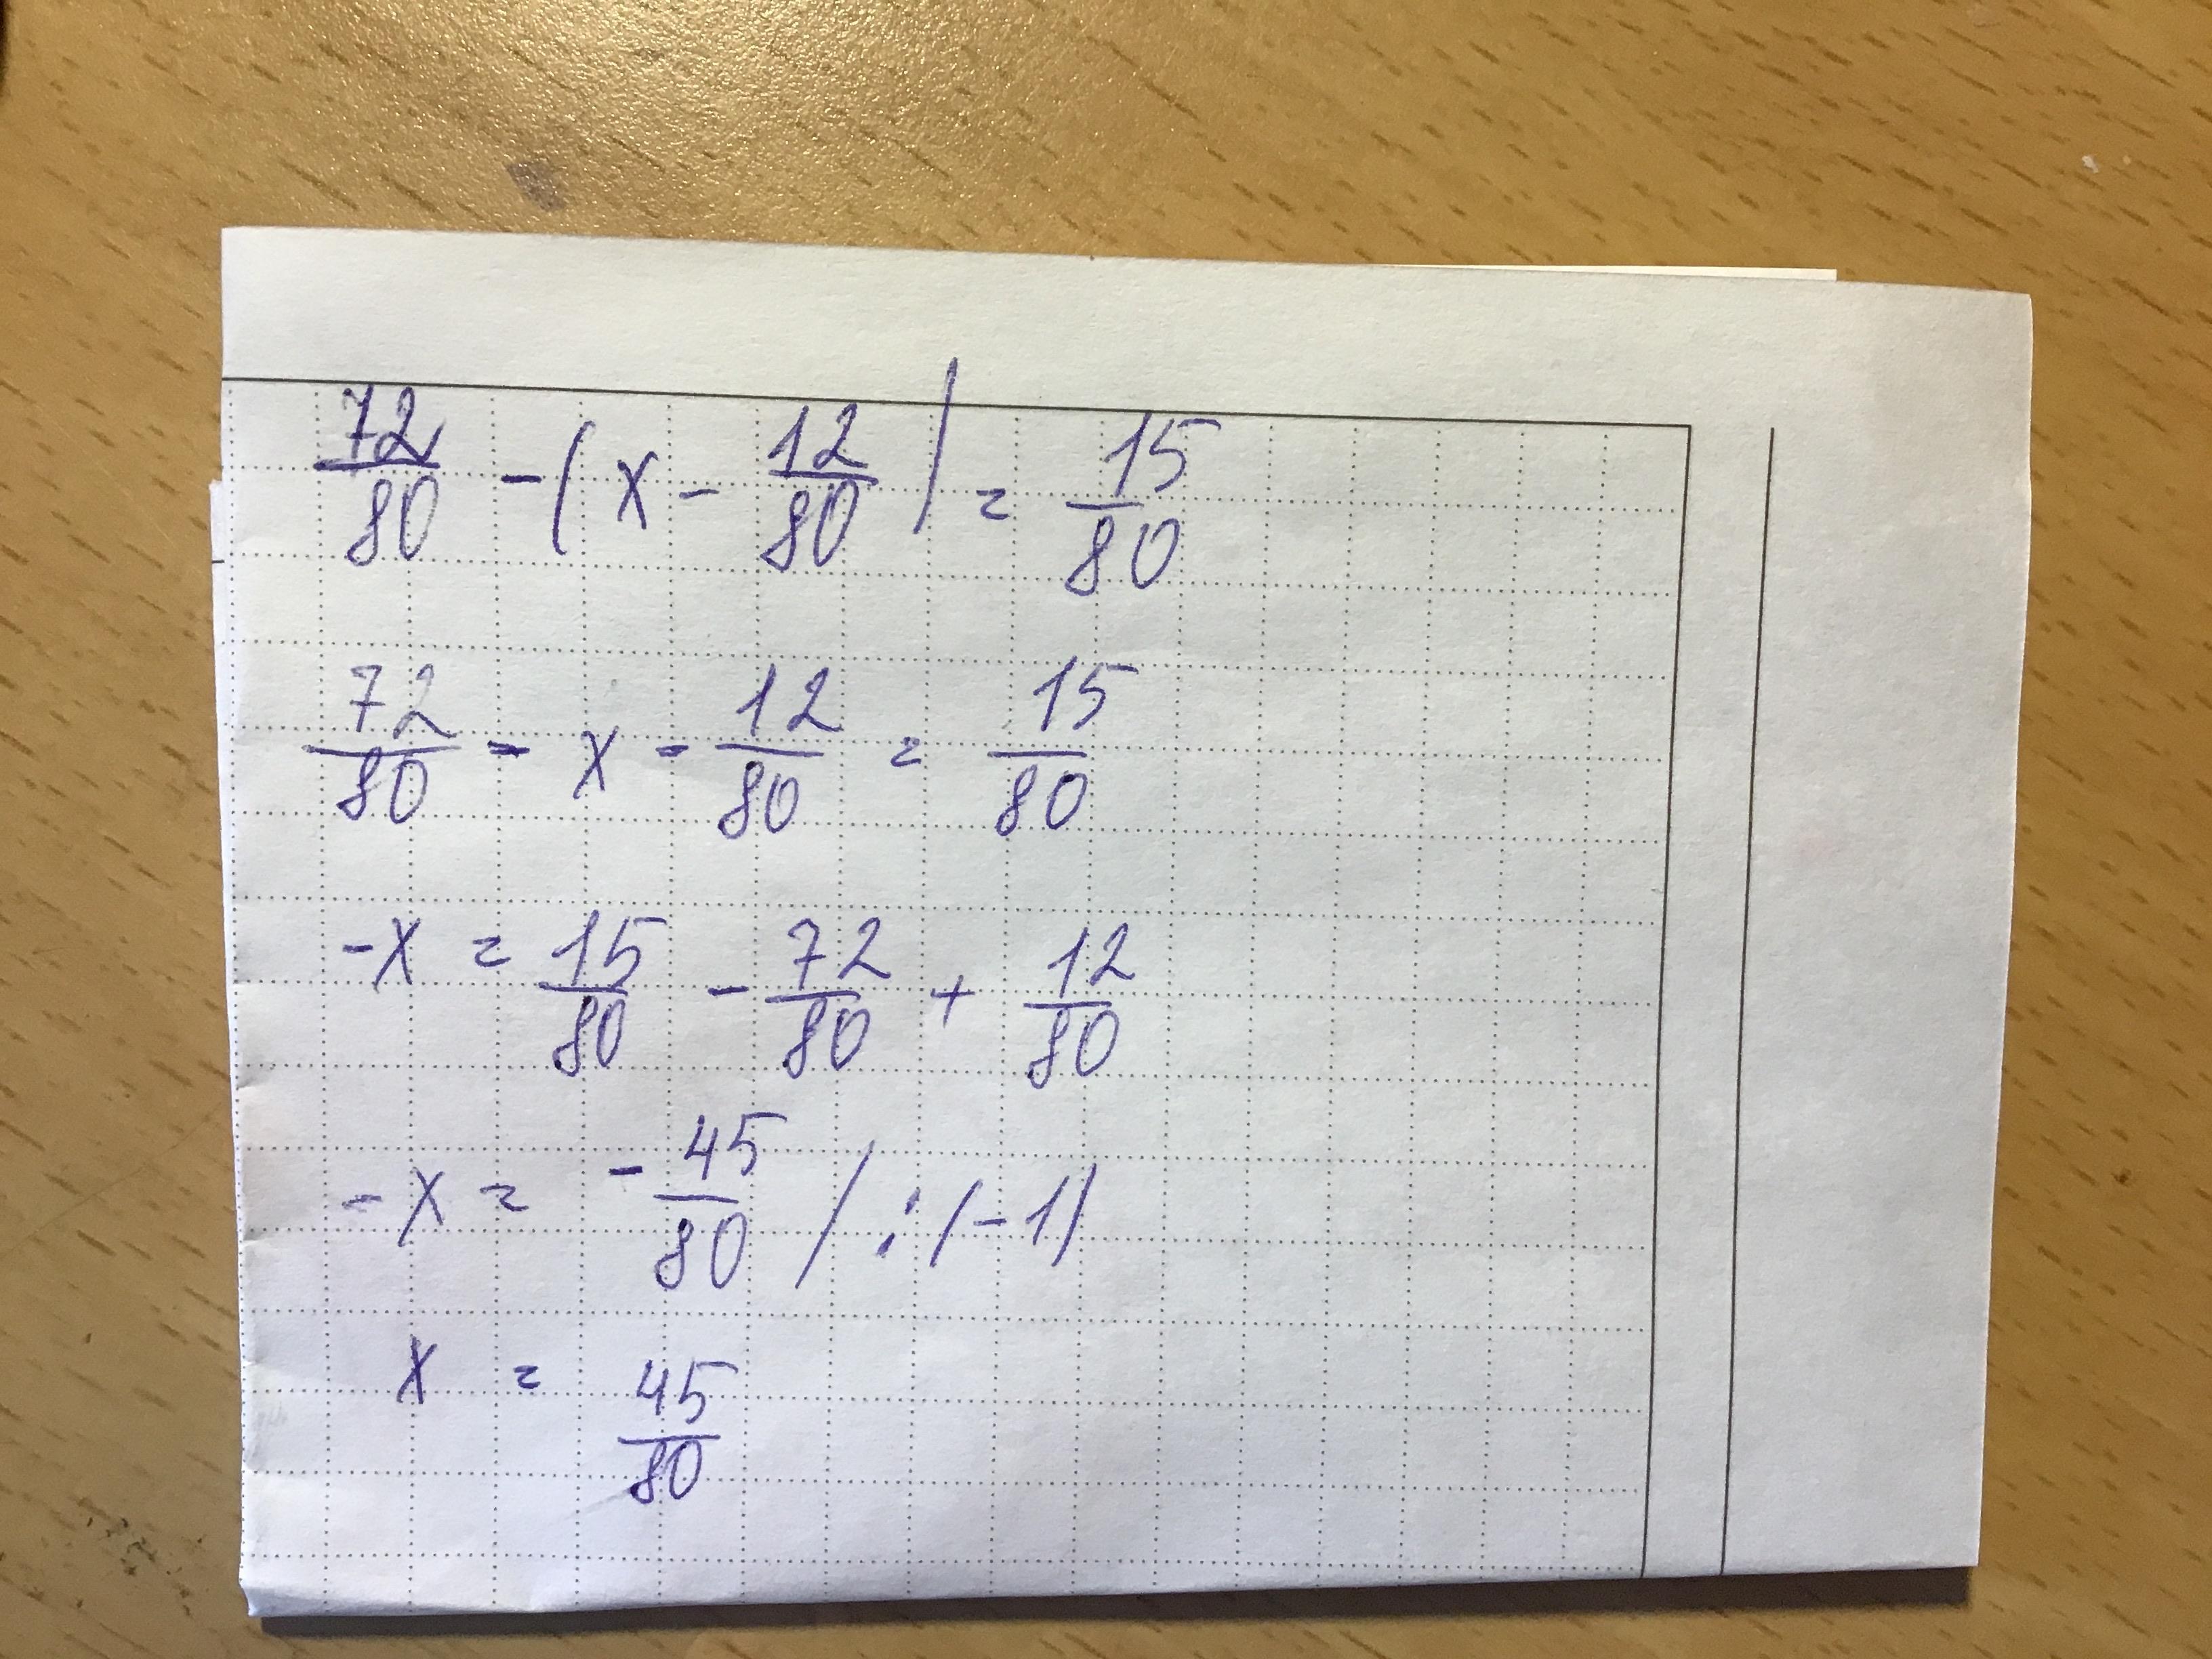 72/80 - (x - 12/80) = 15/80
72/80 - x - 12/80 = 15/80
-x = 15/80 - 72/80 + 12/80
-x = -45/80 / : (-1)
x = 45/80